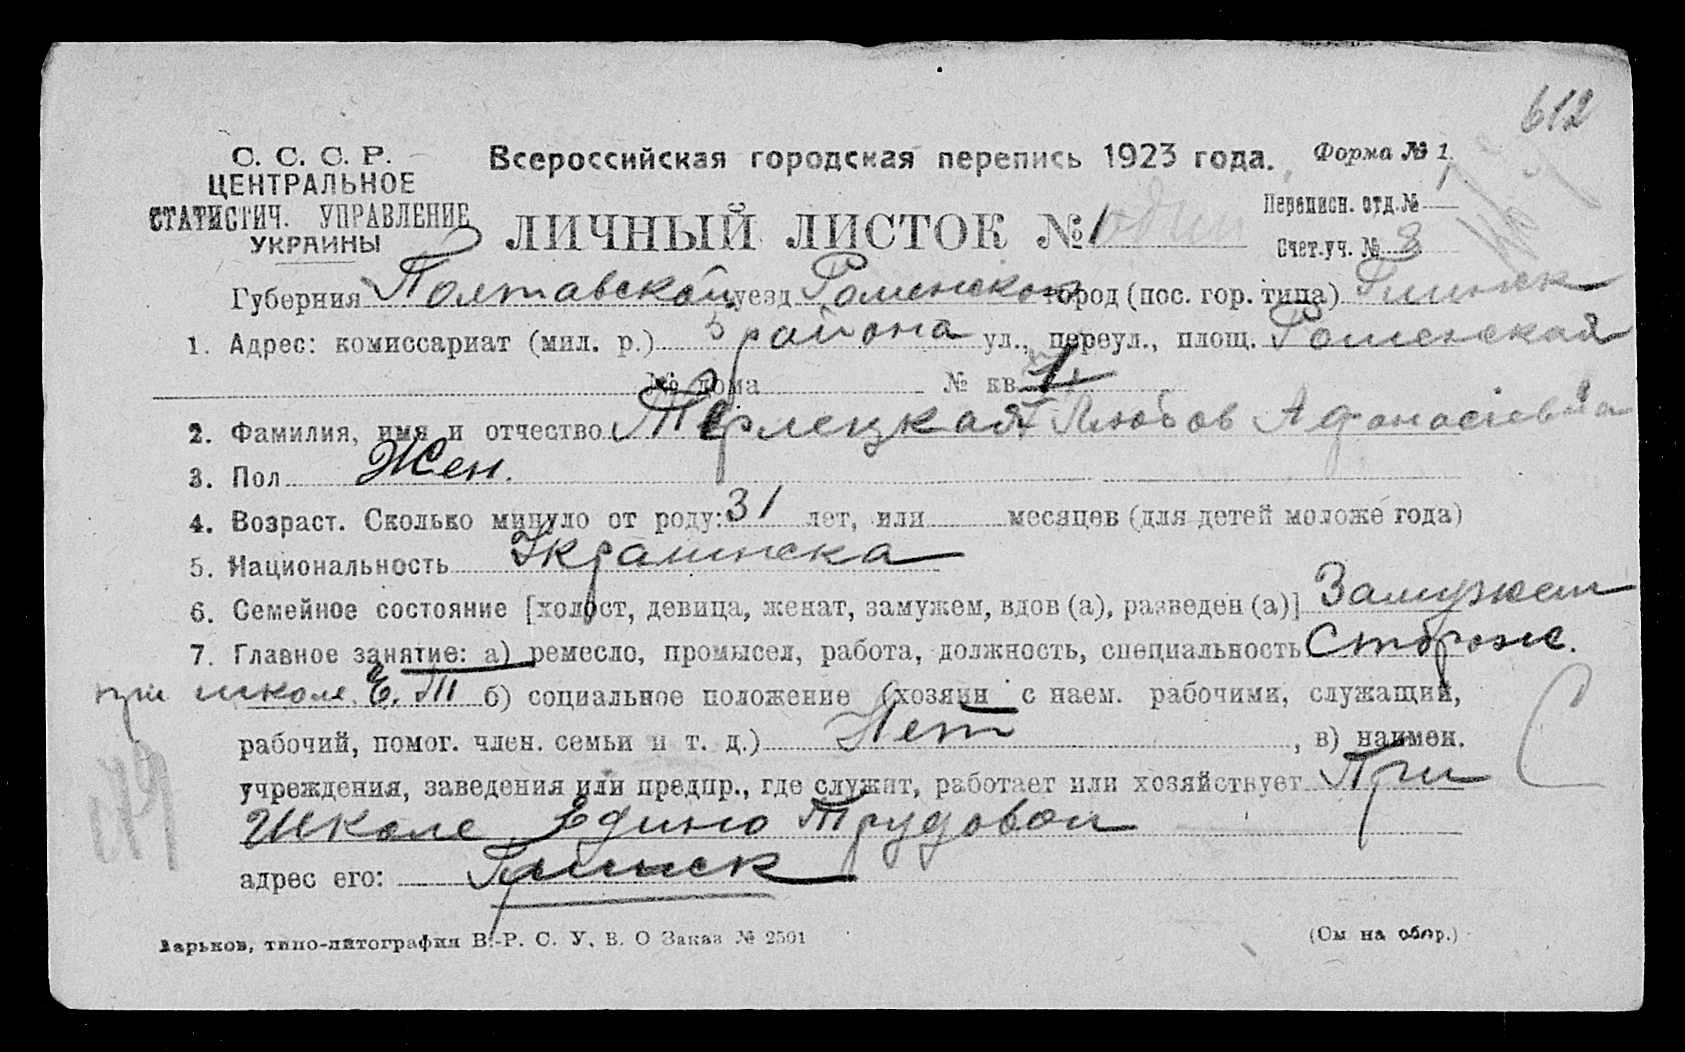 612
С. С. С. Р.
ЦЕНТРАЛЬНОЕ
СТАТИСТИЧ. УПРАВЛЕНИЕ
УКРАИНЫ
Всероссийская городская перепись 1923 года. Форма № 1.
ЛИЧНЫЙ ЛИСТОК № 1 один
Переписн. отд. № 1
Счет.-уч. № 8
Губерния Полтавской уезд Роменской город (пос. гор. типа) Глинск
1. Адрес: комиссариат (мил. р.) района ул., переул., площ. Роменская
№ дома № кв. 1
2. Фамилия, имя и отчество Терлецкая Любов Афанасіевна
3. Пол Жен.
4. Возраст. Сколько минуло от роду: 31 лет, или месяцев (для детей моложе года)
5. Национальность Украинска
6. Семейное состояние [холост, девица, женат, замужем, вдов (а), разведен (а)] Замужем
7. Главное занятие: а) ремесло, промысел, работа, должность, специальность Сторож.
при школе Е. Т б) социальное положение (хозяин с наем. рабочими, служащий,
рабочий, помог. член. семьи и т. д.) Нет , в) наимен.
учреждения, заведения или предпр., где служит, работает или хозяйствует При
Школе Едино Трудовой
адрес его: Глинск
Харьков, типо-литография В.-Р. С. У. В. О Заказ № 2501
(См на обор.)